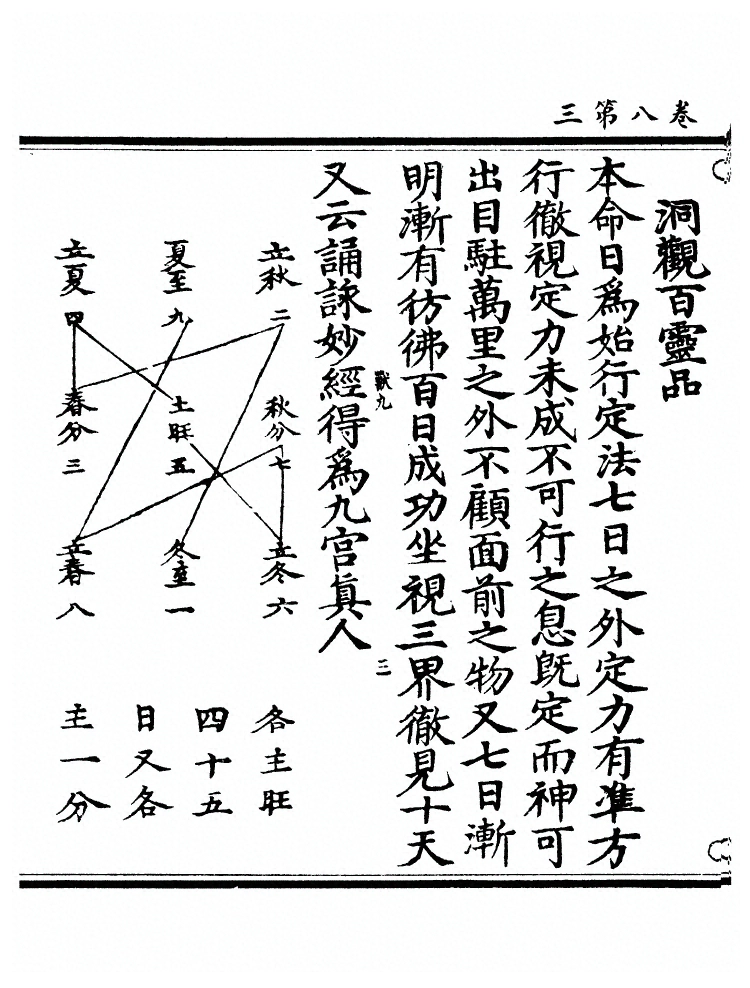 卷八第三
洞觀百靈品
本命日為始行定法七日之外定力有準方
行徹視定力未成不可行之息旣定而神可
出目駐萬里之外不顧面前之物又七日漸
明漸有彷彿百日成功坐視三界徹見十天
又云誦詠妙經得為九宮眞人
獸九
三
立秋二
秋分七
立冬六
夏至九
土旺五
冬至一
立夏四
春分三
立春八
各主旺
四十五
日又各
主一分